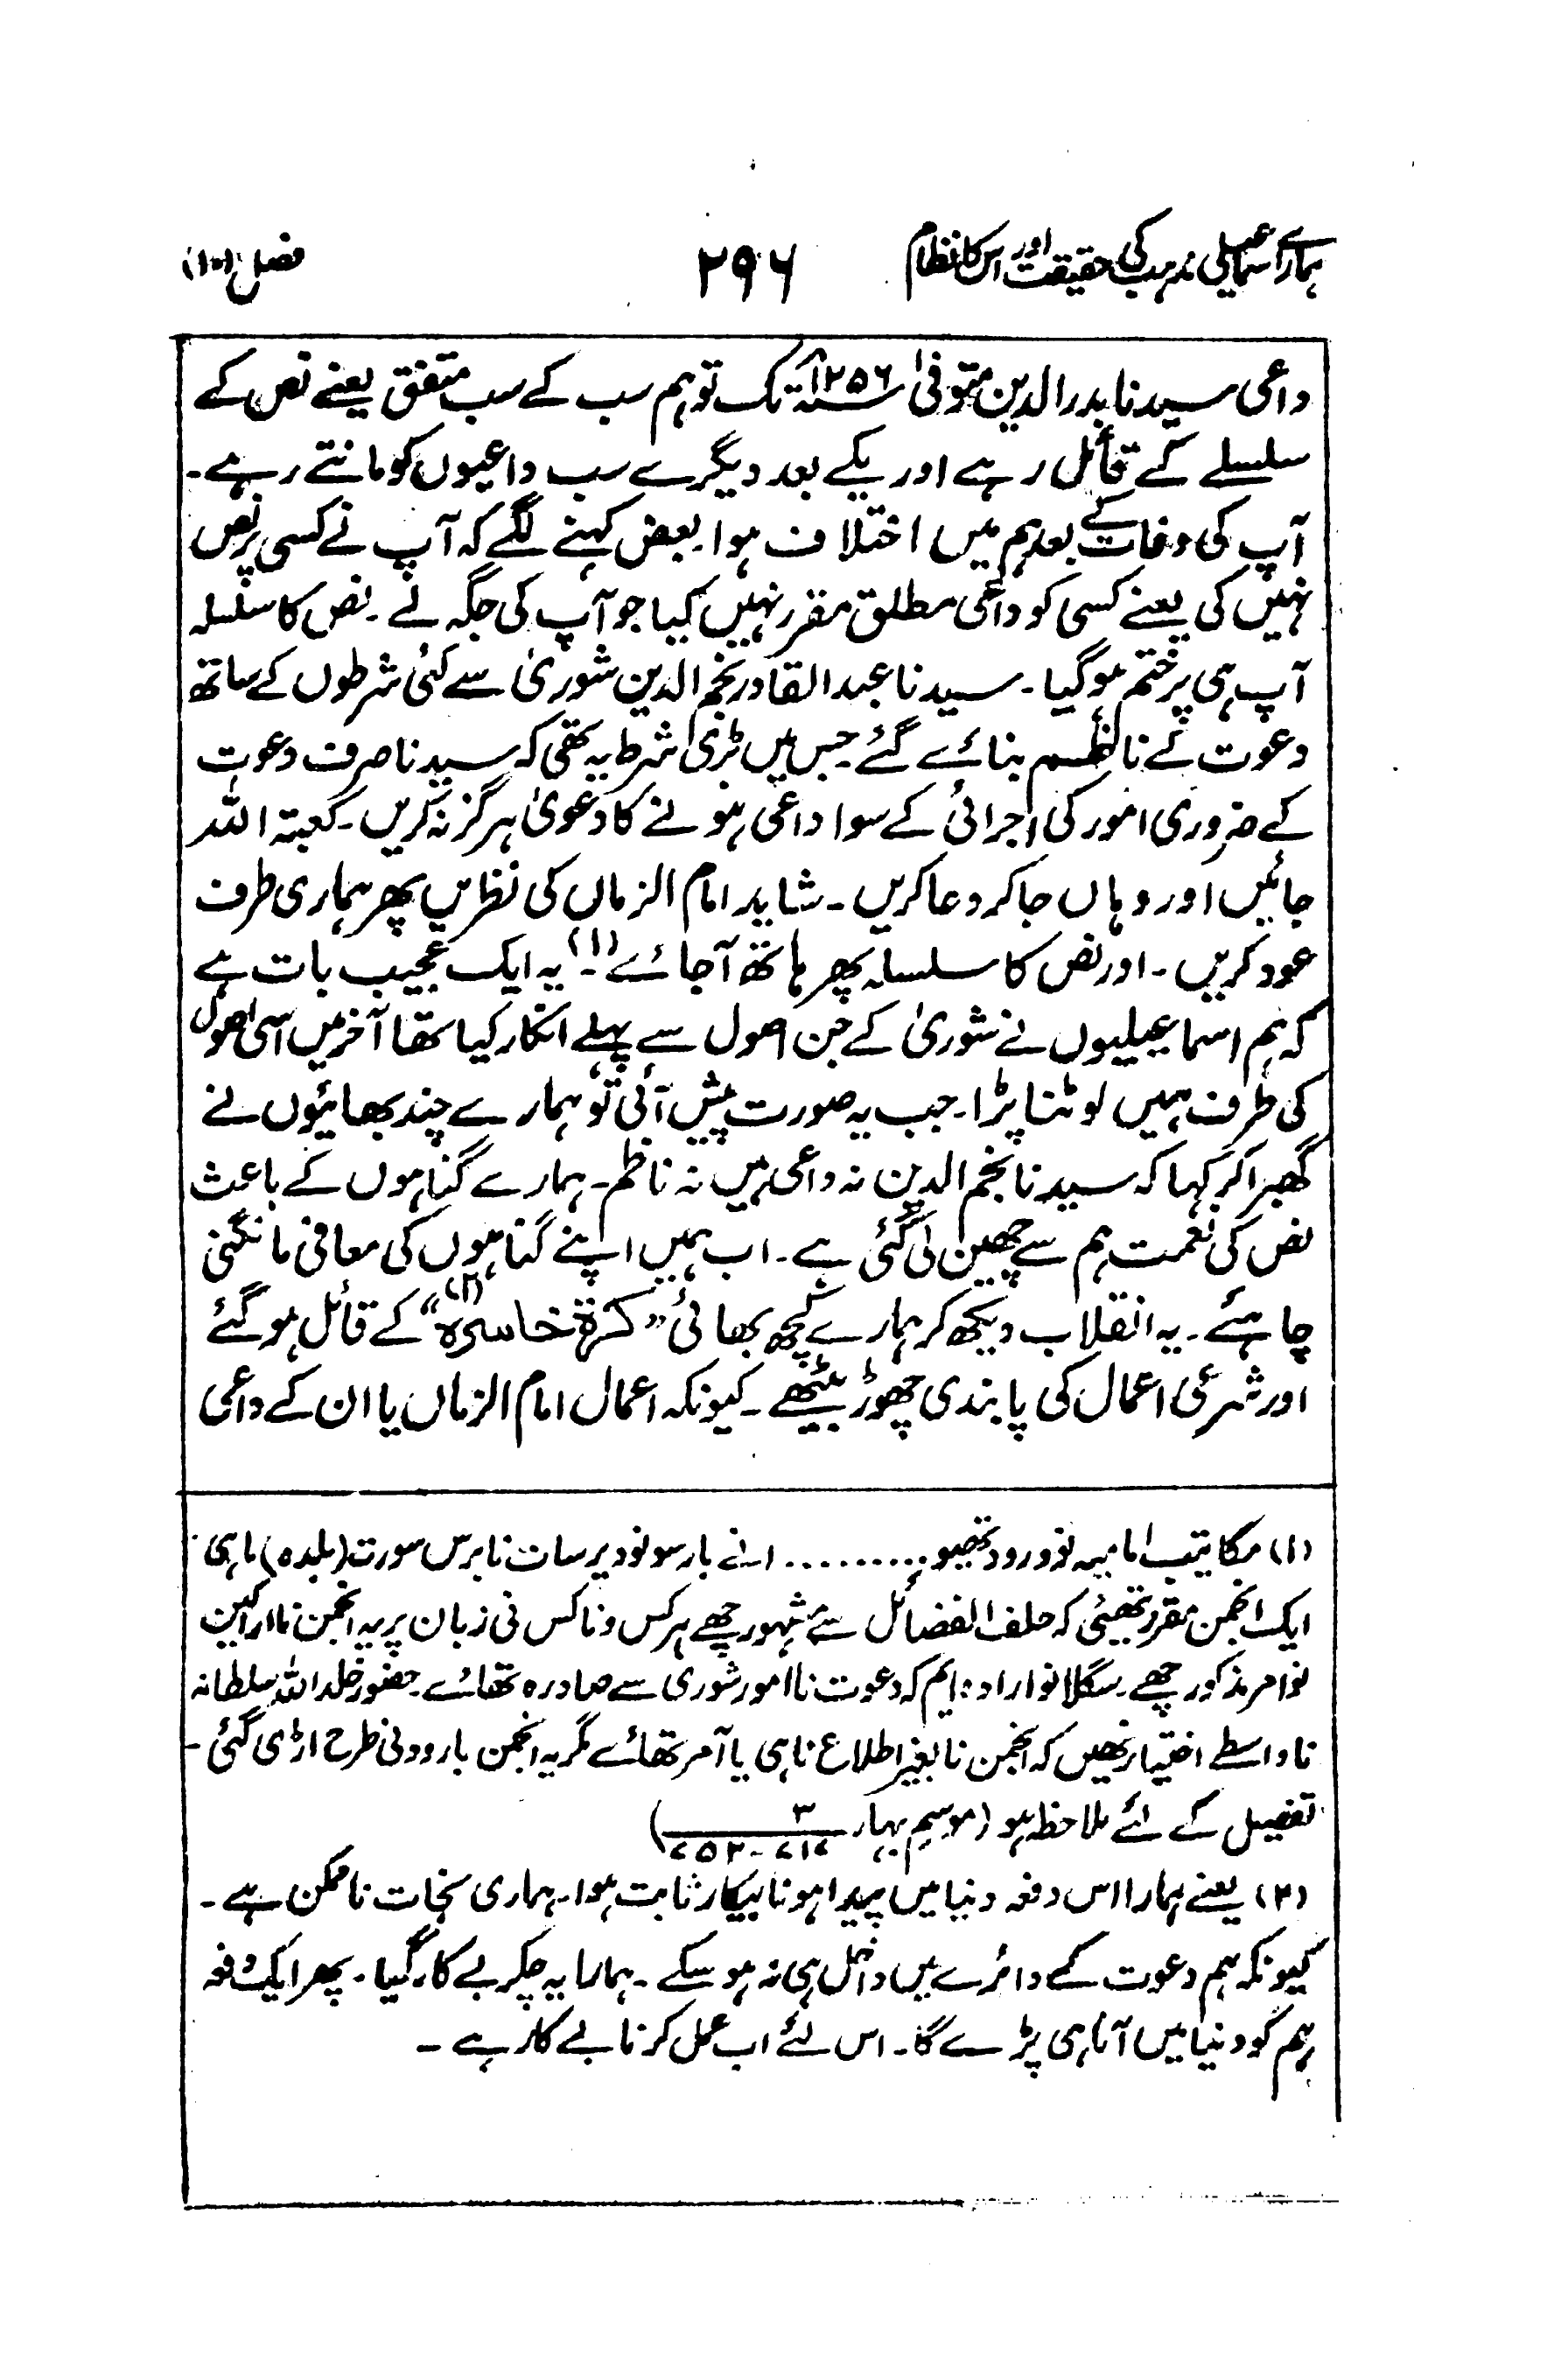 ہمارے اسماعیلی مذہب کی حقیقت اور اس کا نظام ۲۹۶ فصل (۱۰)
داعی سیدنا بدرالدین متوفیٰ ۱۲۵۶ھ تک تو ہم سب کے سب متفق یعنے نص کے
سلسلے کے قائل رہے اور یکے بعد دیگرے سب داعیوں کو مانتے رہے۔
آپ کی وفات کے بعد ہم میں اختلاف ہوا۔ بعض کہنے لگے کہ آپ نے کسی پر نص
نہیں کی یعنے کسی کو داعی مطلق مقرر نہیں کیا جو آپ کی جگہ لے۔ نص کا سلسلہ
آپ ہی پر ختم ہو گیا۔ سیدنا عبدالقادر نجم الدین شوریٰ سے کئی شرطوں کے ساتھ
دعوت کے ناظم بنائے گئے۔ جس میں بڑی شرط یہ تھی کہ سیدنا صرف دعوت
کے ضروری امور کی اجرائی کے سوا داعی ہونے کا دعویٰ ہرگز نہ کریں۔ کعبتہ اللہ
جائیں اور وہاں جا کر دعا کریں۔ شاید امام الزماں کی نظریں پھر ہماری طرف
عود کریں۔ اور نص کا سلسلہ پھر ہاتھ آ جائے۔(۱) یہ ایک عجیب بات ہے
کہ ہم اسماعیلیوں نے شوریٰ کے جن اصول سے پہلے انکار کیا تھا آخر میں اسی اصول
کی طرف ہمیں لوٹنا پڑا۔ جب یہ صورت پیش آئی تو ہمارے چند بھائیوں نے
گھبرا کر کہا کہ سیدنا نجم الدین نہ داعی ہیں نہ ناظم۔ ہمارے گناہوں کے باعث
نص کی نعمت ہم سے چھین لی گئی ہے۔ اب ہمیں اپنے گناہوں کی معافی مانگنی
چاہئے۔ یہ انقلاب دیکھ کر ہمارے کچھ بھائی "کرۃ خاسرہ"(۲) کے قائل ہو گئے
اور شرعی اعمال کی پابندی چھوڑ بیٹھے۔ کیونکہ اعمال امام الزماں یا ان کے داعی
(۱) مکاتیب امامیہ نو ورود تھیو ......... انے بارسو نود پر سات نا برس سورت (بلدہ) ماہی
ایک انجمن مقرر تھئی کہ حلف الفضائل سے مشہور چھے ہر کس و ناکس نی زبان پر یہ انجمن نا اراکین
نو امر مذکور چھے۔ سگلا نو ارادہ ایم کہ دعوت نا امور شوری سے صادرہ تھائے۔ حضور خلد اللہ سلطانہ
نا واسطے اختیار نہیں کہ انجمن نا بغیر اطلاع ناہی یا آمر تھائے مگر یہ انجمن بارود نی طرح اڑی گئی۔
تفصیل کے لئے ملاحظہ ہو (موسم بہار ۳ / ۷۱۷ - ۷۵۲)
(۲) یعنے ہمارا اس دفعہ دنیا میں پیدا ہونا بیکار ثابت ہوا۔ ہماری نجات ناممکن ہے۔
کیونکہ ہم دعوت کے دائرے میں داخل ہی نہ ہو سکے۔ ہمارا یہ چکر بے کار گیا۔ پھر ایک دفعہ
ہم کو دنیا میں آنا ہی پڑے گا۔ اس لئے اب عمل کرنا بے کار ہے۔